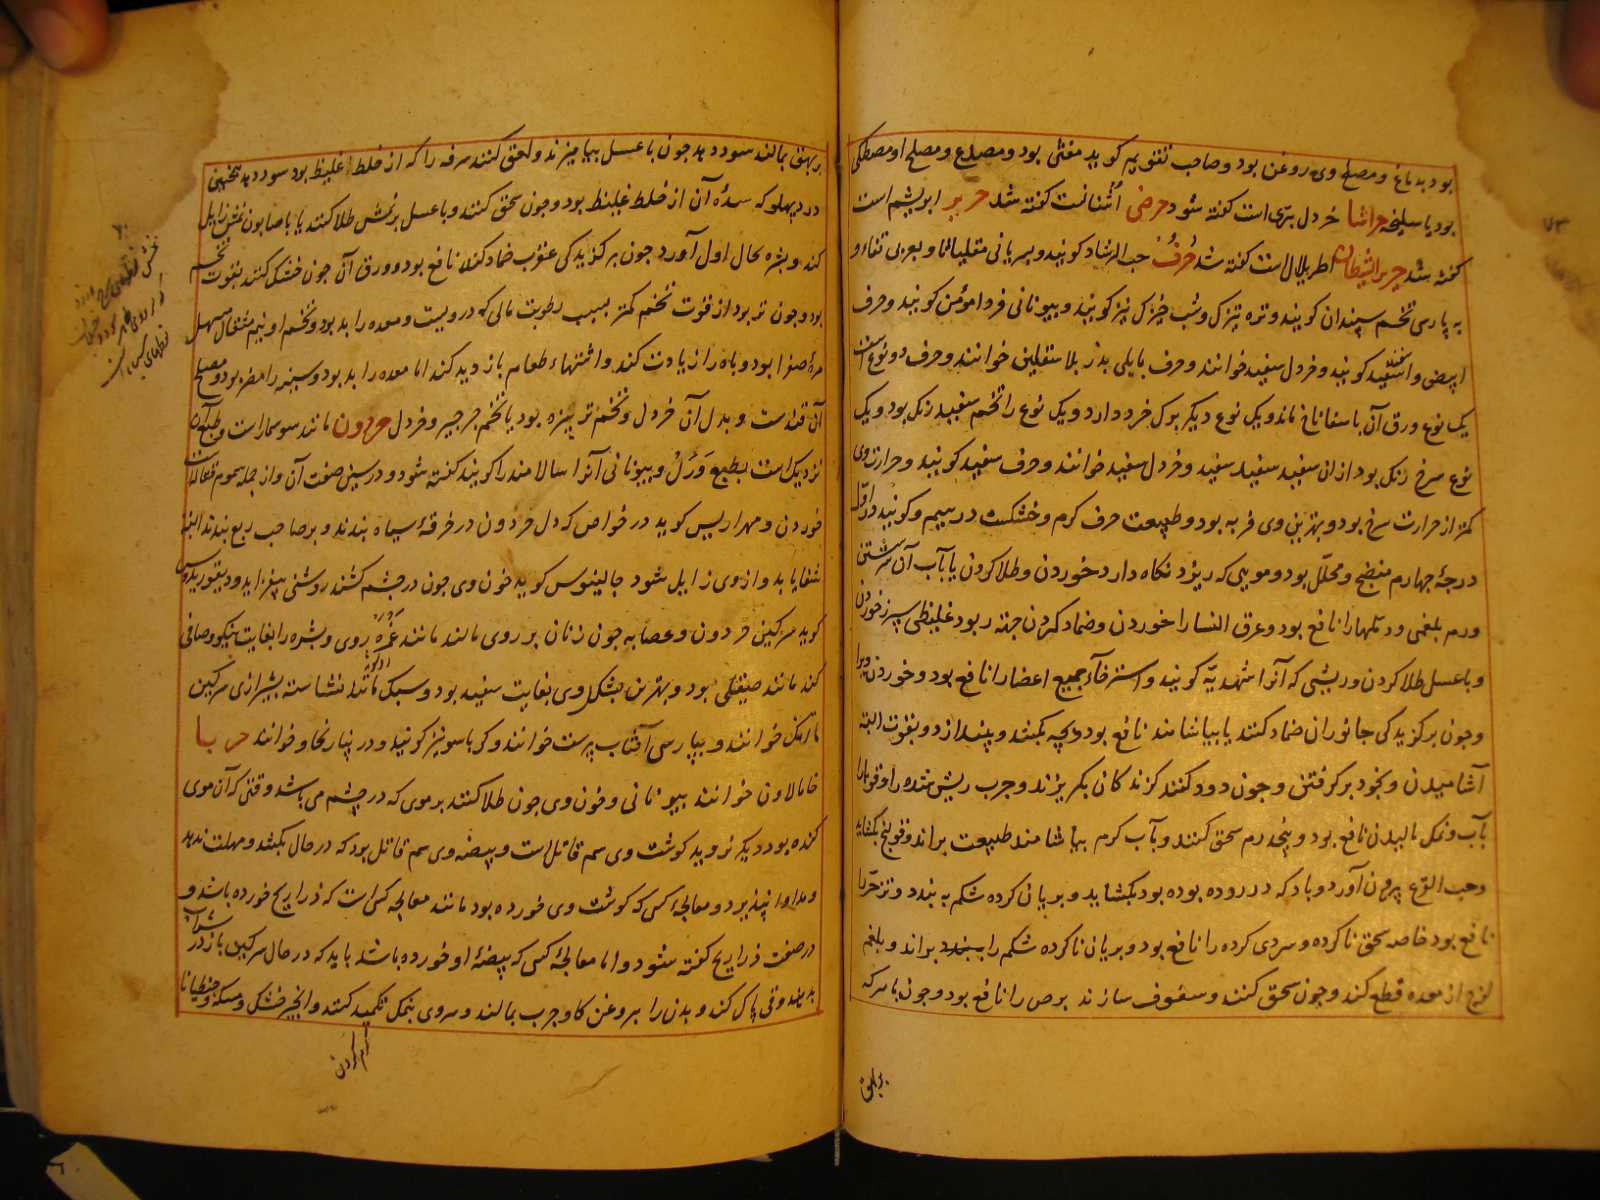 بود بدماغ و مصلح وی روغن بود و صاحب تقویم گوید مغثی بود و مصدع و مصلح او مصطکی
بود یا سلیخه حراشا خردل بری است گفته شود حرضی اشنانست گفته شد حریر ابریشم است
گفته شد حربر الشیطان اطریلال است گفته شد حرف حب الرشاد گویند و بسریانی مقلیاثا و بعربی ثفاء و
به پارسی تخم سپندان گویند و تره تیزک و شب خیزک نیز گویند و بیونانی فردامومن گویند و حرف
ابیض و اسفید گویند و خردل سفید خوانند و حرف بابلی بذر بلا سقلین خوانند و حرف دو نوع است
یک نوع ورق آن باسفاناخ ماند و یک نوع دیگر برک خرد دارد و یک نوع را تخم سفید رنک بود و یک
نوع سرخ رنک بود از ان سفید سفید سفید و خردل سفید خوانند و حرف سفید گویند و حرارت وی
کمتر از حرارت سرخ بود و بهترین وی فربه بود و طبیعت حرف گرم و خشکست در سیم و گویند در اول
درجهٔ چهارم منضج و محلل بود و مویی که ریزد نگاه دارد خوردن و طلا کردن یا بآب آن سرشتن
ورم بلغمی و دملها را نافع بود و عرق النسا را خوردن و ضماد کردن جهة ربو و غلیظی سپرز خوردن
و با عسل طلا کردن و ریشی که آنرا شهدیه گویند و استرخاء جمیع اعضا را نافع بود و خوردن ویرا
و چون بر گزیدگی جانوران ضماد کنند یا بیاشامند نافع بود و بچه بکشد و بیندازد و بقوت البته
آشامیدن و بخود بر گرفتن و چون دود کنند گزندگان بگریزند و جرب ریش شده را و قوبا را
بآب و نمک مالیدن نافع بود و پنجدرم سحق کنند و بآب گرم بیاشامند طبیعت براند و قولنج بگشاید
و حب القرع بیرون آورد و بادی که در روده بوده بود بگشاید و بریان کرده شکم به بندد و تزحر را
نافع بود خاصه سحق ناکرده و سردی کرده را نافع بود و بریان ناکرده شکم را براند و بلغم
لزج از معده قطع کند و چون سحق کنند و سفوف سازند برص را نافع بود و چون با سرکه
بر بهق
۷۳
بر بهق بمالند سود دهد چون با عسل بیامیزند و لعق کنند سرفه را که از خلط غلیظ بود سود دهد همچنین
درد پهلو که سدهٔ آن از خلط غلیظ بود و چون سحق کنند و با عسل برنمش طلا کنند یا با صابون نمش زایل
کند و بشره بحال اول آورد چون بر گزیدگی عقرب ضماد کنند نافع بود و ورق آن چون خشک کنند بقوت تخم
بود و چون تر بود از قوت تخم کمتر بسبب رطوبت مائی که در ویست و معده را بد بود و تخم او نیم مثقال مسهل
مرهٔ صفرا بود و باه را زیادت کند و اشتهاء طعام بازدید کند اما معده را بد بود و سینه را مضر بود و مصلح
آن قندست و بدل آن خردل و تخم تر تیزه بود یا تخم جرجیر و خردل حردون مانند سوسمار است و طبع او
نزدیک است بطبع وَرَل و بیونانی آنرا سالامندرا گویند گفته شود در سین صفت آن و از جمله سموم قتالست
خوردن و مهراریس گوید در خواص که دل حردون در خرقهٔ سیاه بندند و بر صاحب ربع بندند البته
شفا یابد و از وی زایل شود جالینوس گوید خون وی چون در چشم کشند روشنی بیفزاید و دیسقوریدوس
گوید سرگین حردون و عصابه چون زنان بر روی مالند مانند غمره روی و بشره را بغایت نیکو و صافی
کند مانند صیقلی بود و بهترین پشکل وی بغایت سفید بود و سبک مانند نشاسته بشیرازی سرگین
ماترنک خوانند و بپارسی آفتاب پرست خوانند و کرباسو نیز گویند و در خوانند حربا
خامالاون خوانند بیونانی و خون وی چون طلا کنند بر موی که در چشم می باشد وقتی که آن موی
کنده بود دیگر نروید گوشت وی سم قاتل است و بیضه وی سم قاتل بود که در حال بکشد و مهلت ندهد
و مداوا نپذیرد و معالجهٔ کسی که گوشت وی خورده بود مانند معالجه کسی است که ذراریح خورده باشد و
در صفت ذراریح گفته شود و اما معالجهٔ کسی که بیضهٔ او خورده باشد باید که در حال سرگین باز در شراب
بدهند و قی پاک کند و بدن را بروغن گاو چرب بمالند و سر وی بنمک تکمید کنند و انجیر خشک و مسکه و جنطیانا
گرم کردن